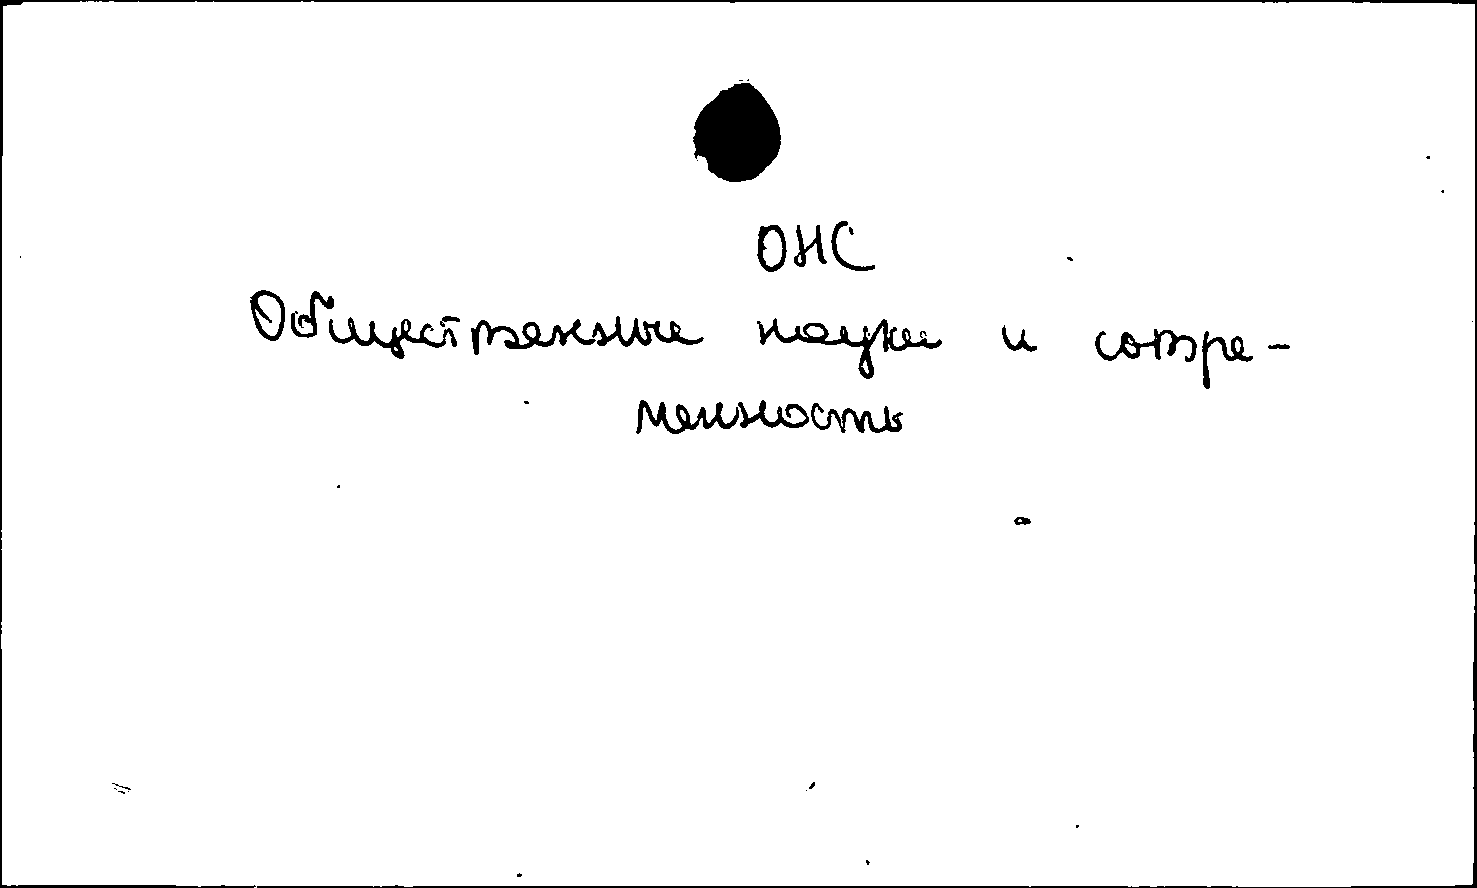 ОНС
Общественные науки и совре-
менность